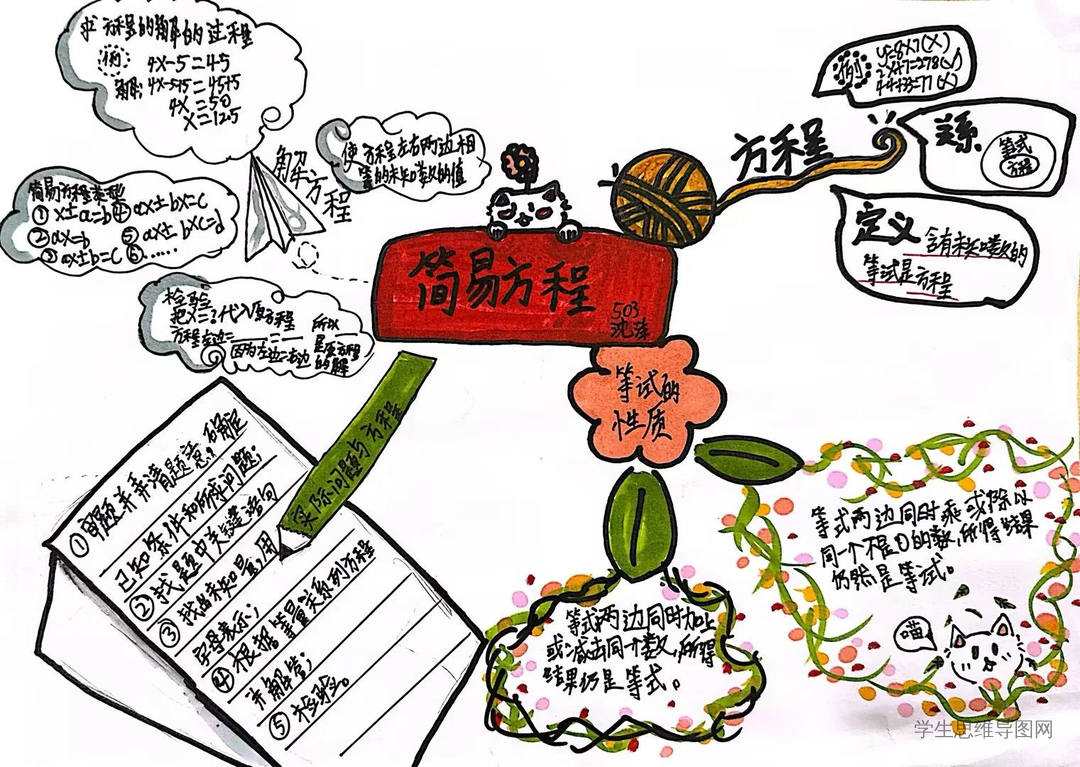 求方程的解的过程
例:
4x-5=45
解: 4x-5+5=45+5
4x=50
x=12.5
简易方程类型
① x±a=b ④ ax±bx=c
② ax=b ⑤ ax±bxc=d
③ ax±b=c ⑥……
解方程
使方程左右两边相
等的未知数的值
检验
把x=?代入原方程
方程左边=
=
因为左边=右边
所以
是原方程
的解
简易方程
503
方程
例
(x)
2x+7=278(√)
44+33=77(x)
关系
等式
方程
定义
含有未知数的
等试是方程
等试的
性质
等式两边同时加上
或减去同一个数,所得
结果仍是等式。
等式两边同时乘或除以
同一个不是0的数,所得结果
仍然是等式。
喵
实际问题与方程
① 审题并弄清题意,确定
已知条件和所求问题;
② 找题中关键语句
③ 找出未知量,用
字母表示;
④ 根据等量关系列方程
并解答;
⑤ 检验。
学生思维导图网